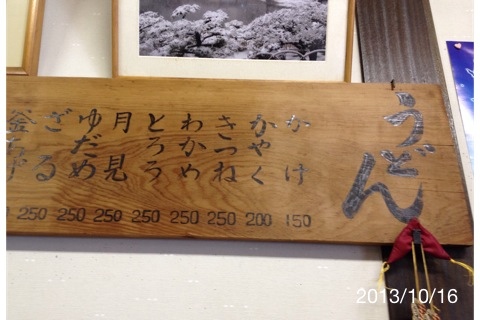 うどん
かけ 150
かやく 200
きつね 250
わかめ 250
とろろ 250
月見 250
ゆだめ 250
ざる 250
釜
2013/10/16